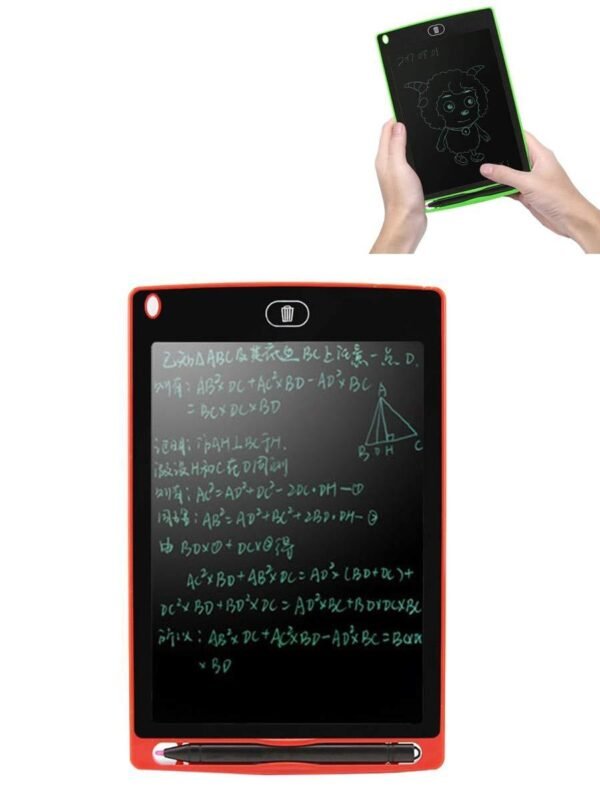 2017.08.01
已知△ABC及其底边BC上任意一点D.
则有: AB²×DC+AC²×BD-AD²×BC
= BC×DC×BD
A
B D H C
证明: 作AH⊥BC于H.
假设H和C在D同侧
则有: AC²=AD²+DC²-2DC·DH—①
同理: AB²=AD²+BC²+2BD·DH—②
由 BD×①+DC×②得
AC²×BD+AB²×DC=AD²×(BD+DC)+
DC²×BD+BD²×DC=AD²×BC+BD×DC×BC
所以: AB²×DC+AC²×BD-AD²×BC=BC×DC
×BD